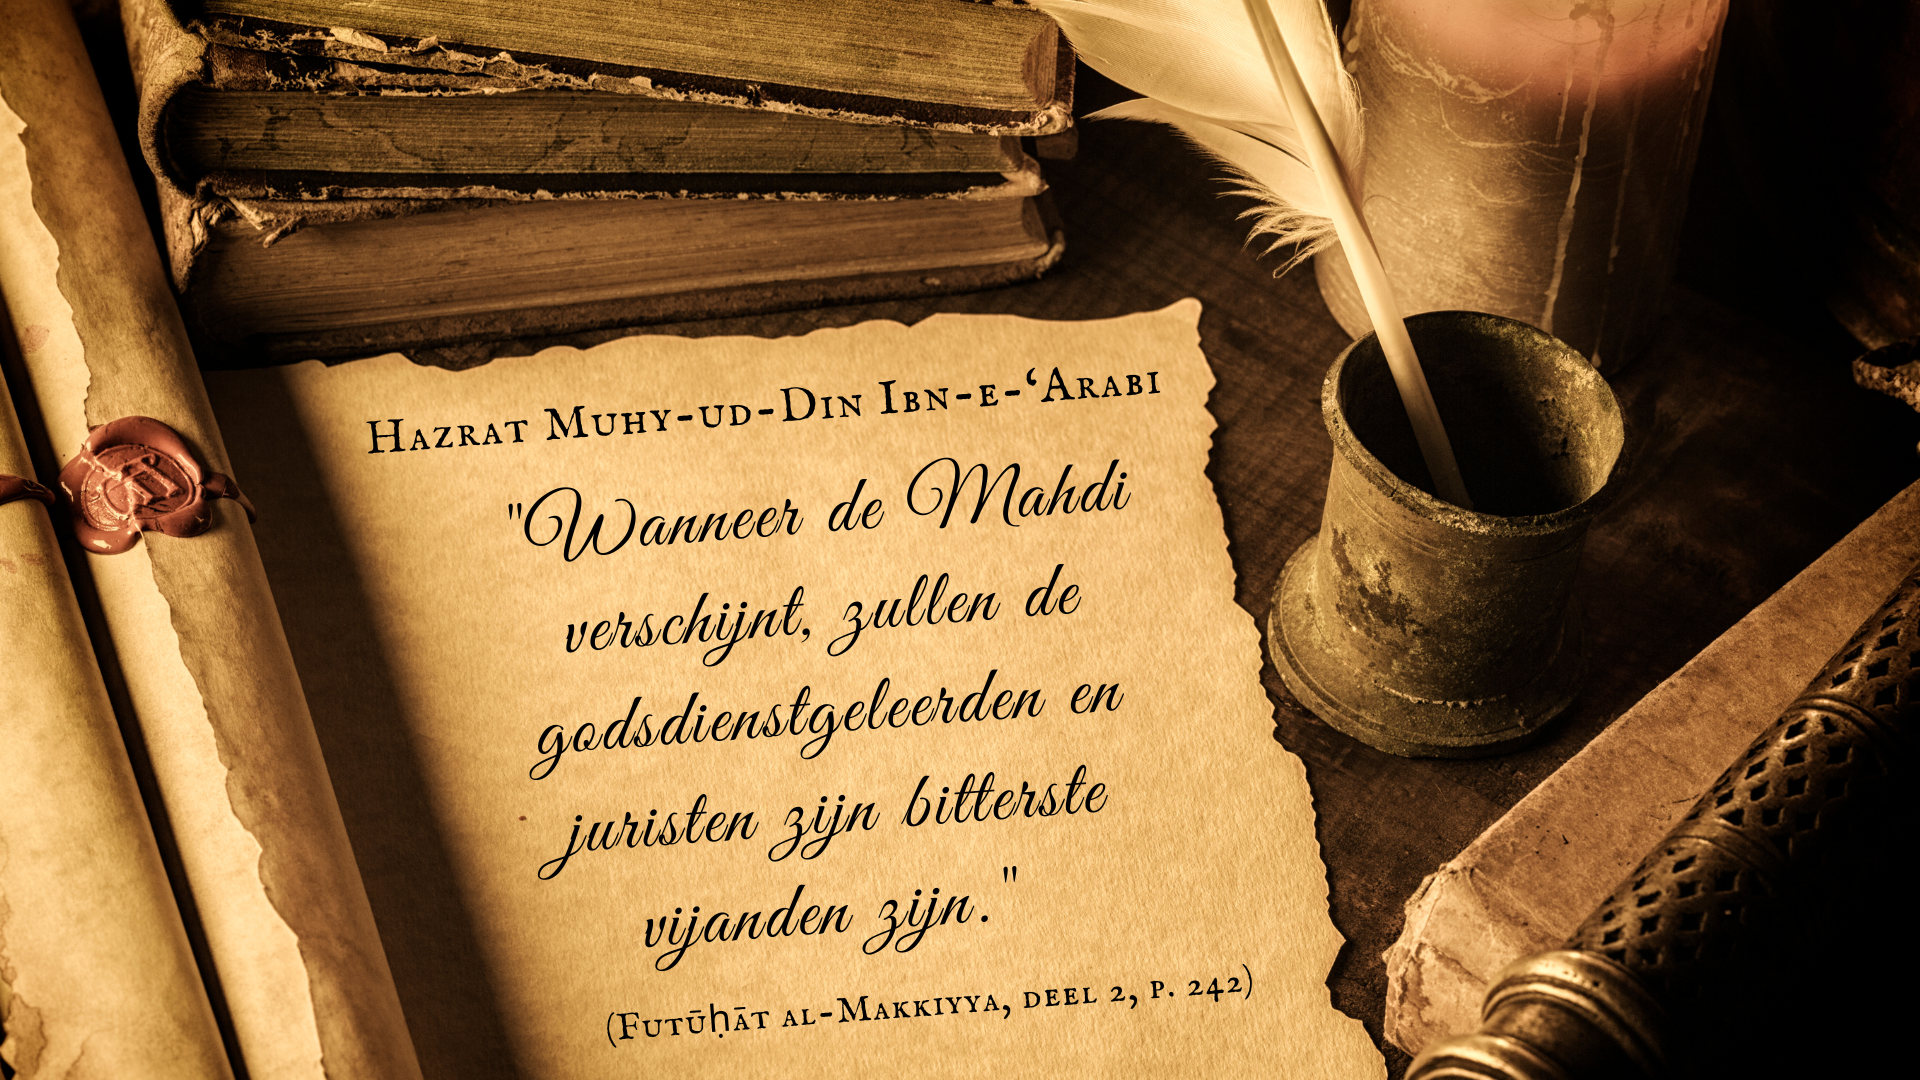 Hazrat Muhy-ud-Din Ibn-e-‘Arabi
"Wanneer de Mahdi
verschijnt, zullen de
godsdienstgeleerden en
juristen zijn bitterste
vijanden zijn."
(Futūḥāt al-Makkiyya, deel 2, p. 242)